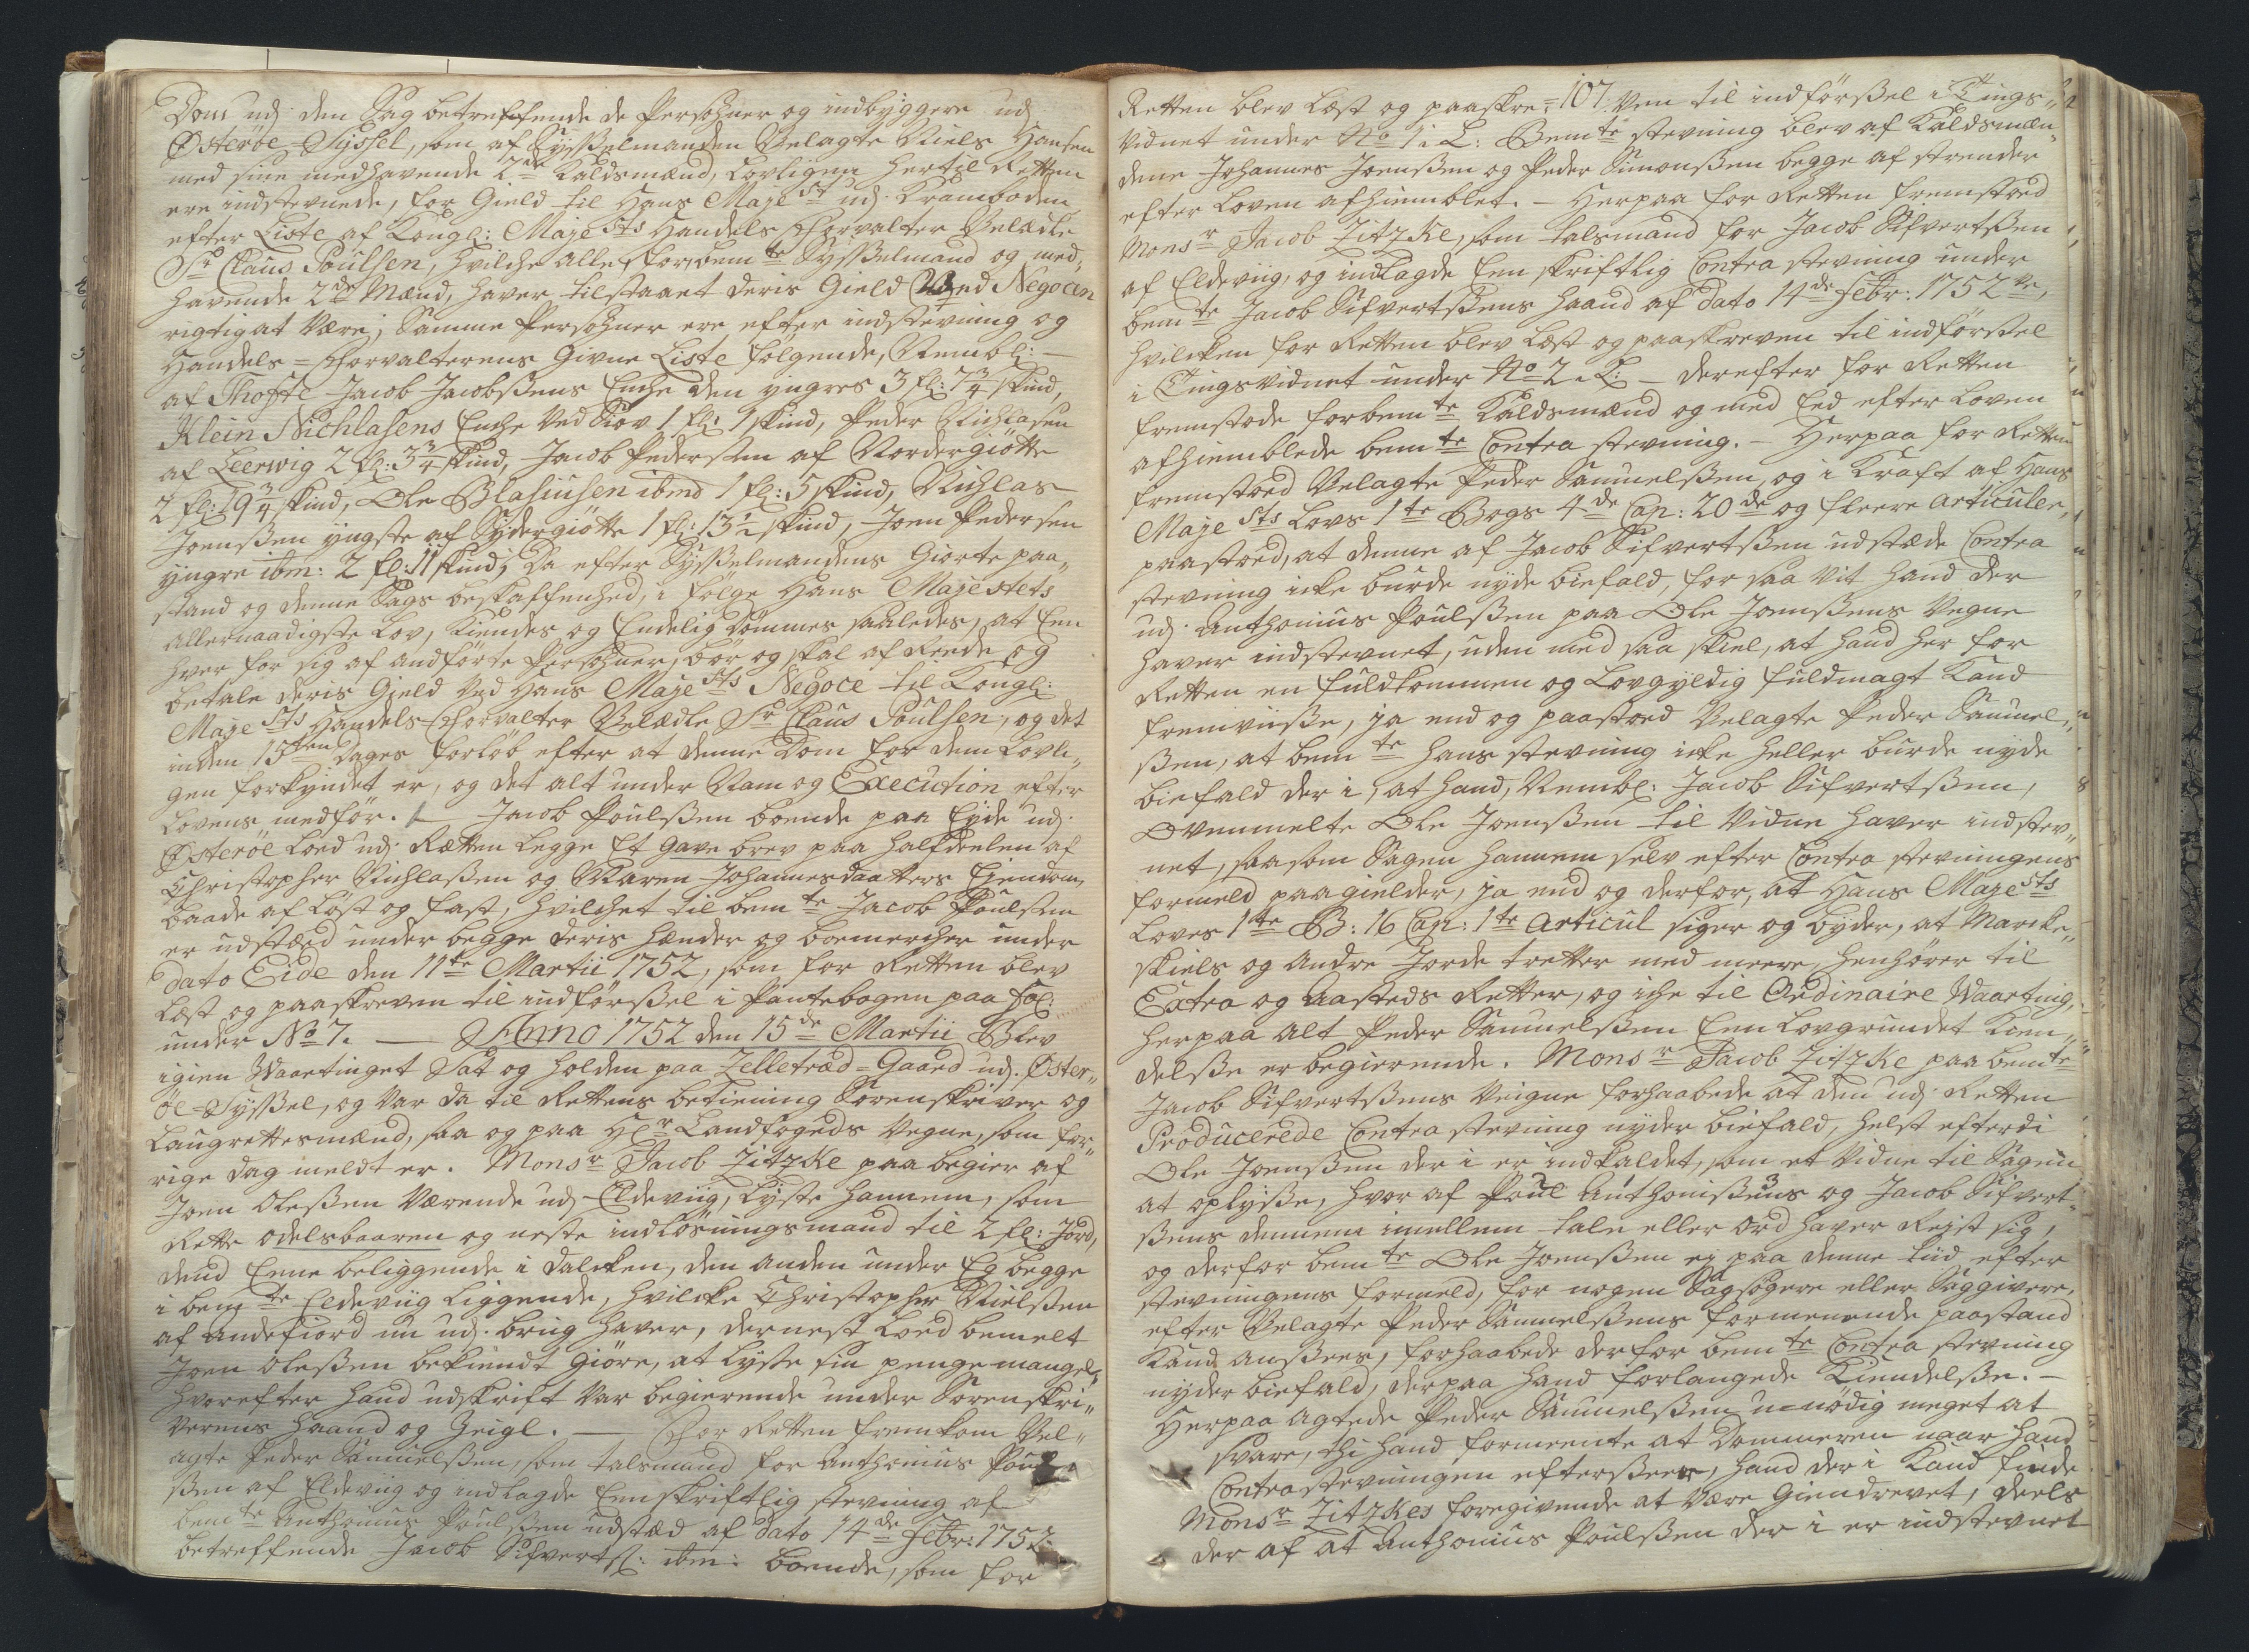 Dom udj den Sag betreffende de Persohner og indbyggere udj
Østeröe Syssel, som af Sysselmanden Velagte Niels Hansen
med sine medhavende 2de Kaldsmænd, Lovligen hertil Retten
ere indstevnede, for Gield til Hans Majest udj. Kramboden
efter Liste af Kongl: Majests Handels Forvalter Velædle
Sr Claus Poulsen, hvilche alle for bemte Sysselmand og med„
havende 2de Mænd, haver tilstaaet deris Gield Ved Negocen
rigtig at Være; Samme Persohner ere efter indstevning og
Handels=Forvalterens Givne Liste fölgende, Nembl: —
af Thofte Jacob Jacobssens Enche den yngres 3 fl: 7¾ skind,
Klein Nichlasens Enche Ved Siov 1 fl: 1 skind, Peder Nichlasen
af Leerwig 2 fl: 3¾ skind, Jacob Pederssen af Nordergiötte
2 fl: 19¾ skind, Ole Blasiusen ibmd 1 fl: 5 skind, Nichlas
Joenssen yngste af Sydergiötte 1 fl: 13½ skind, Joen Pedersen
yngre ibm: 2 fl: 11 skind; Da efter Sysselmandens Giorte paa„
stand og denne Sags beskaffenhed, i fölge Hans Majestets
allernaadigste Lov, Kiendes og Endelig Dömmes saaledes, at Een
hver for sig af andförte Persohner, bör og skal af Reede og
betale deris Gield Ved Hans Majests Negoce til Kongl:
Majests Handels Forvalter Velædle Sr Claus Poulsen, og det
inden 15ten Dages forlöb efter at denne Dom for dem Lovli„
gen forkyndet er, og det alt under Nam og Execution efter
Lovens medför. — Jacob Poulssen boende paa Eyde udj
Österöe Loed udj Rætten Legge Et gave brev paa halfdeelen af
Christopher Nichlassen og Maren Johannesdaatters Eiendom,
baade af Löst og fast, hvilchet til bemte Jacob Poulssen
er udstæd under begge deris hænder og boemercher under
dato Eide den 11te Martii 1752, som for Retten blev
Læst og paaskreven til indförssel i Pantebogen paa fol:
under No 7. — Anno 1752 den 15de Martii Blev
igien Waartinget Sat og holden paa Zelletræd=Gaard udj. Öster„
öe=Sysssel, og var da til Rettens betiening Sorenskriver og
Laugrettesmænd, saa og paa Hr Landfogeds Vegne, som for„
rige dag meldt er. Monsr Jacob Zitzke paa begier af
Joen Olessen Værende udj Eldeviig, Lyste hannem, som
Rette odelsbaaren og neste indlösningsmand til 2 fl: Jord,
dend Eene beliggende i Dalcken, den anden under Eg begge
i bemte Eldeviig Liggende, hvilcke Christopher Nielssen
af Andefiord nu udj. brug haver, dernest Loed bemelt
Joen Olessen bekiendt Giöre, at Lyste sin penge mangel,
hvorefter hand udskrift Var begierende under Sorenskri„
verens haand og Zeigl. — For Retten fremkom Vel„
agte Peder Samuelssen, som talsmand for Anthonius Poul„
ssen af Eldeviig og indlagde Een skriftlig stevning af
bemte Anthonius Poulssen udstæd af dato 14de Febr: 1752
betreffende Jacob Sifverts: ibm: boende, som for
107
Retten blev Læst og paaskre= ven til indförssel i Tings„
vidnet under No 1. L: Bemte stevning blev af Kaldsmæn„
dene Johannes Joenssen og Peder Simonssen begge af strender
efter Loven afhiemblet. — Herpaa for Retten fremstoed
Monsr Jacob Zitzke, som talsmand for Jacob Sifvertssen
af Eldeviig, og indlagde Een skriftlig Contra stevning under
bemte Jacob Sifvertssens haand af dato 14de Febr: 1752de,
hvilcken for Retten blev Læst og paaskreven til indförssel
i Tingsvidnet under No 2. L: — Derefter for Retten
fremstode forbemte Kaldsmænd og med Eed efter Loven
afhiemblede bemte Contra stevning. — Herpaa for Retten
fremstoed Velagte Peder Samuelssen, og i Kraft af Hans
Majests Lovs 1te Bogs 4de Cap: 20de og fleere Articuler,
paastoed, at denne af Jacob Sifvertssen udstæde Contra
stevning icke burde nyde biefald, for saa vit hand der
udj. Anthonius Poulssen paa Ole Joenssens Vegne
haver indstevnet, uden med saa skiel, at hand her for
Retten en fuldkommen og Lovgyldig fuldmagt Kand
fremviisse, ja end og paastoed Velagte Peder Samuel„
ssen, at bemte hans stevning icke heller burde nyde
biefald der i, at hand, Nembl: Jacob Sifvertssen,
Ovenmelte Ole Joenssen til Vidne haver indstev„
net, saasom Sagen hannem selv efter Contra stevningens
formeld paagielder, ja end og derfor, at Hans Majests
Loves 1te B: 16 Cap: 1te Articul siger og byder, at Marcke„
skiels og Andre Jorde tretter med meere, henhörer til
Extra og Aasteds Retter, og iche til Ordinaire Waarting,
herpaa alt Peder Samuelssen Een Lovgrundet Kien„
delsse er begierende. Monsr Jacob Zitzke paa bemte
Jacob Sifvertssens Veigne forhaabede at den udj Retten
Producerede Contra stevning nyder biefald, helst efterdi
Ole Joenssen der i er indkaldet, som et Vidne til Sagen
at oplysse, hvor af Poul Anthonissens og Jacob Sifvert„
ssens dennem imellem tale eller ord haver Rejst sig,
og derfor bemte Ole Joenssen ej paa denne tiid efter
stevningens formeld, for nogen Sagsögere eller Saggivere,
efter Velagte Peder Samuelssens formenende paastand
Kand ansSees, forhaabede derfor bemte Contra stevning
nyder biefald, derpaa hand forlangede Kiendelsse. —
Herpaa Agtede Peder Samuelssen u=nödig meget at
svare, thi hand formeente at Dommeren naar hand
Contrastevningen efterssseer, hand der i Kand finde
Monsr Zitzkes foregivende at være Giendrevet, deels
der af at Anthonius Poulssen der i er indstevnet